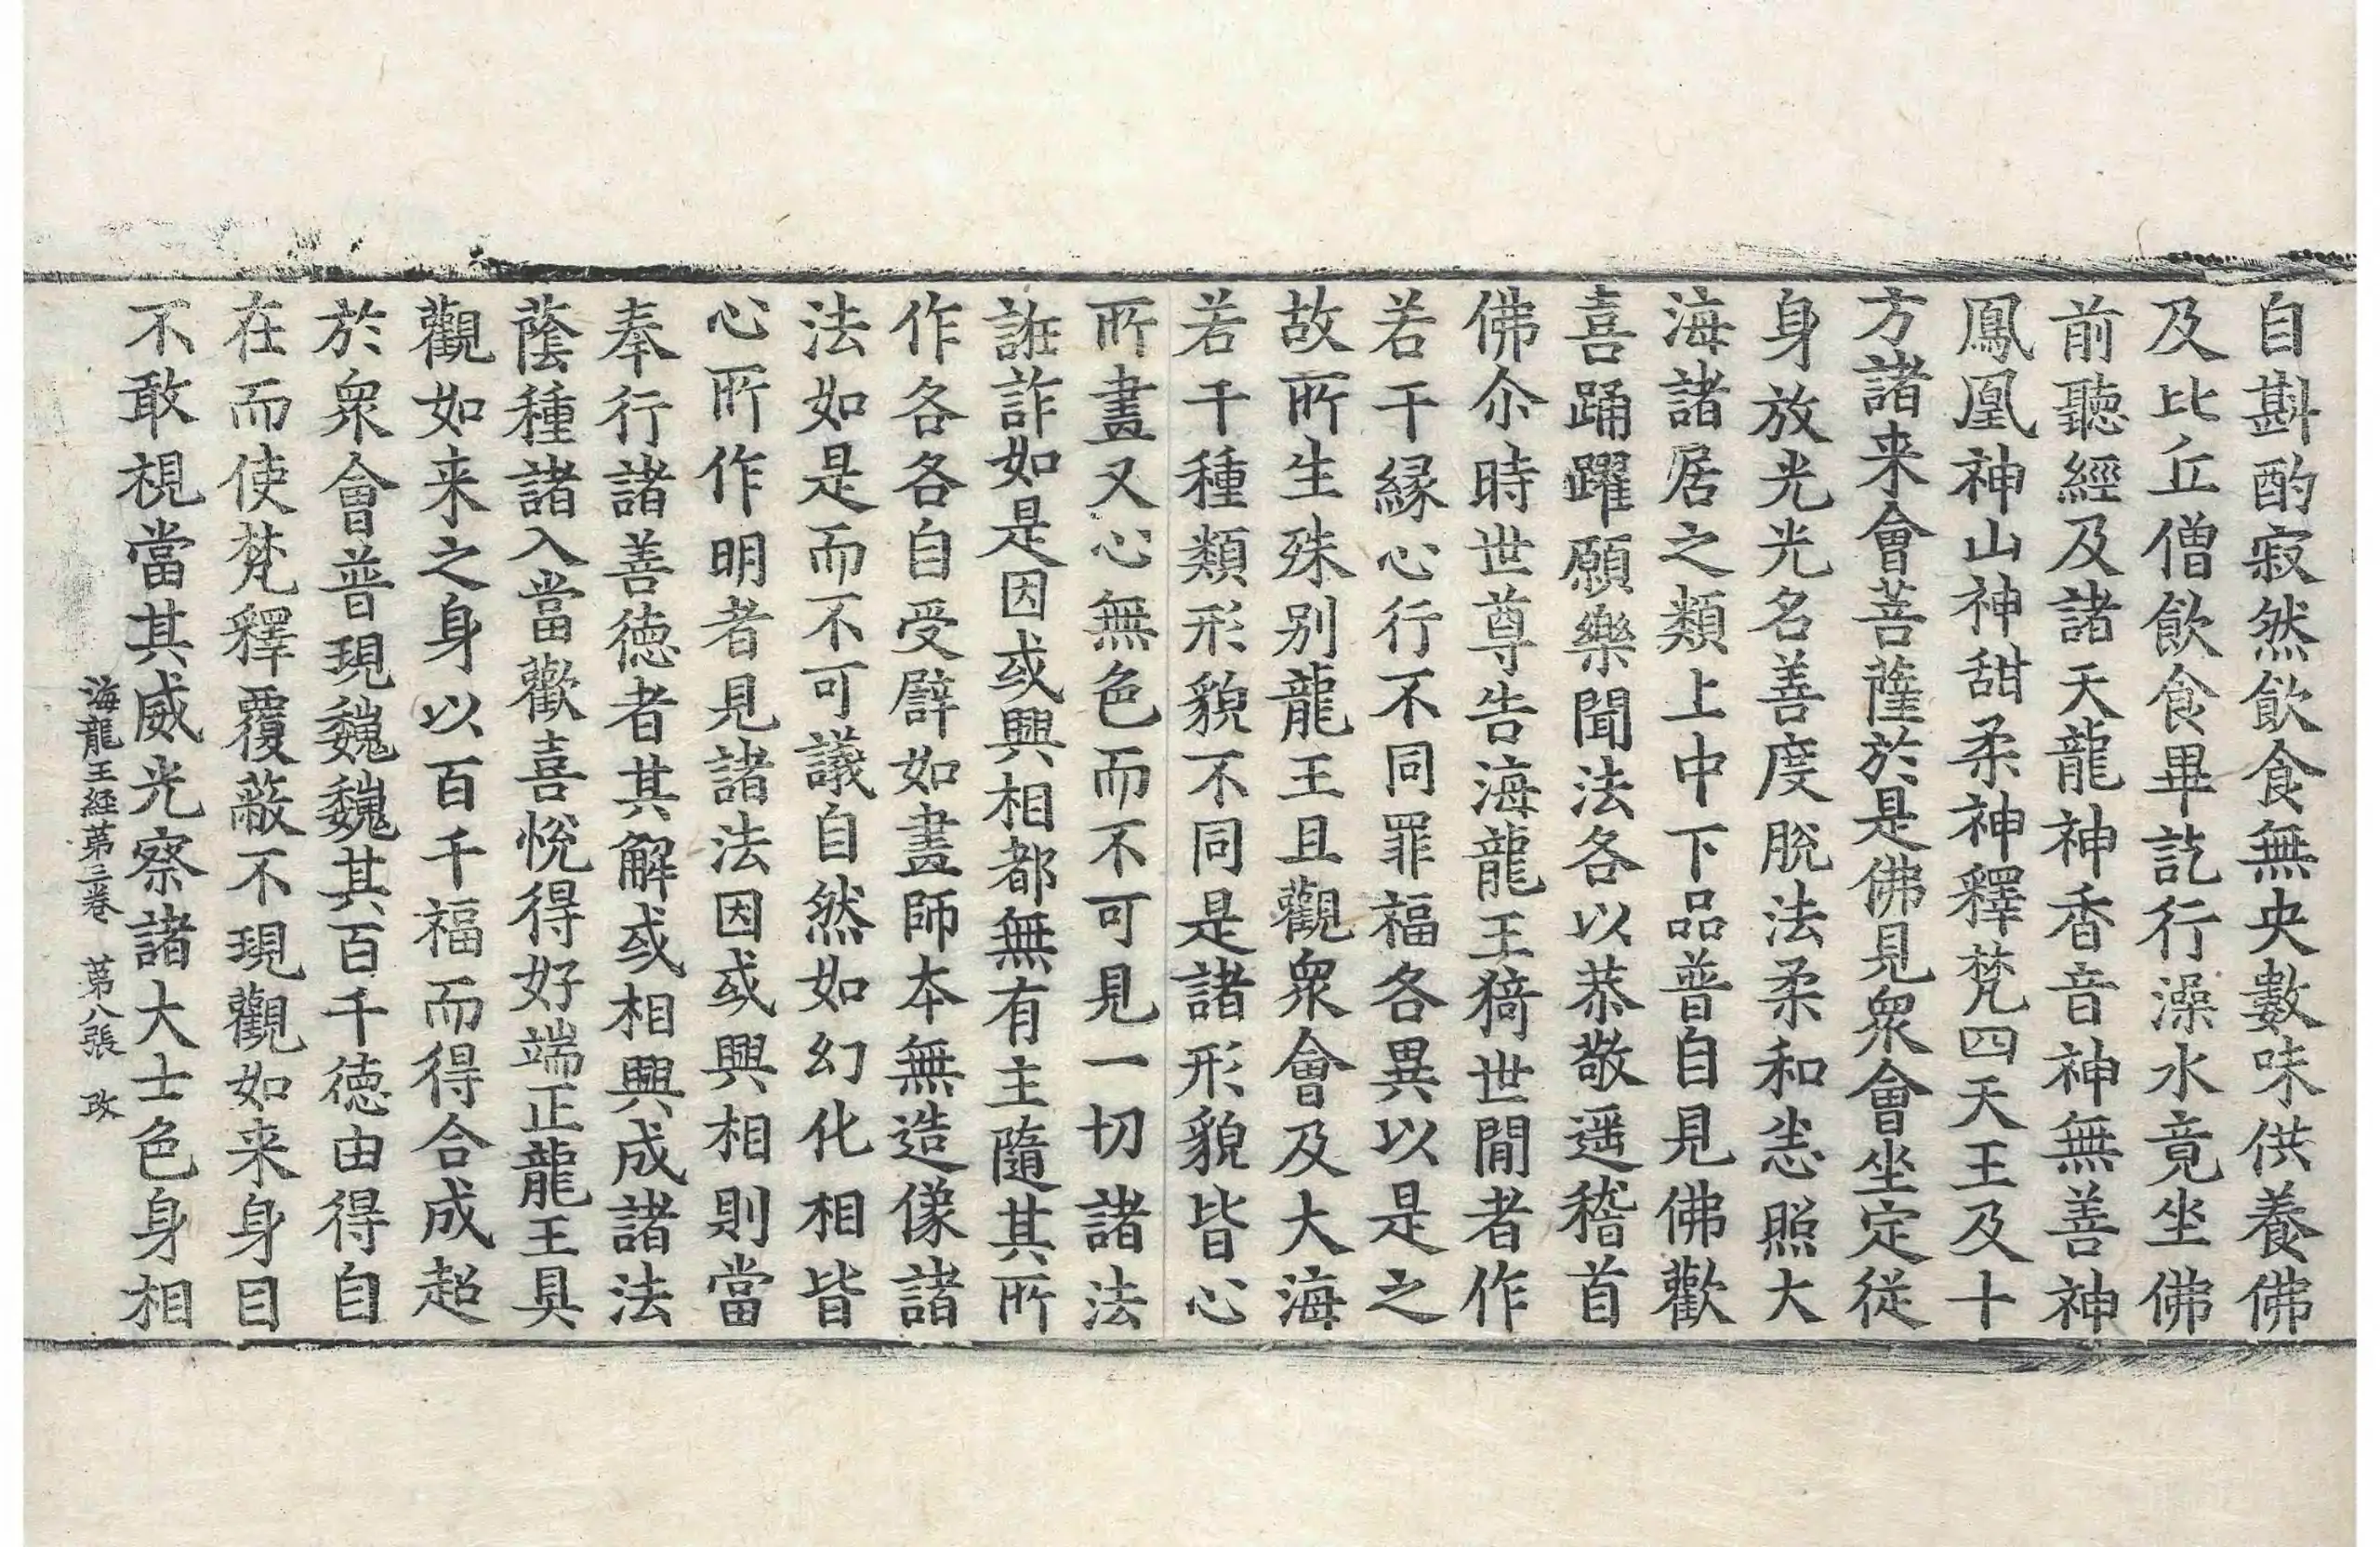 自斟酌寂然飲食無央數味供養佛
及比丘僧飲食畢訖行澡水竟坐佛
前聽經及諸天龍神香音神無善神
鳳凰神山神甜柔神釋梵四天王及十
方諸来會菩薩於是佛見衆會坐定従
身放光光名善度脫法柔和恙照大
海諸居之類上中下品普自見佛歡
喜踊躍願樂聞法各以恭敬遥稽首
佛尒時世尊告海龍王猗世閒者作
若干縁心行不同罪福各異以是之
故所生殊别龍王且觀衆會及大海
若干種類形貌不同是諸形貌皆心
所畫又心無色而不可見一切諸法
誑詐如是因或興相都無有主隨其所
作各各自受譬如畫師本無造像諸
法如是而不可議自然如幻化相皆
心所作明者見諸法因或興相則當
奉行諸善徳者其解或相興成諸法
蔭種諸入當歡喜悅得好端正龍王具
觀如来之身以百千福而得合成超
於衆會普現巍巍其百千徳由得自
在而使梵釋覆蔽不現觀如来身目
不敢視當其威光察諸大士色身相
海龍王經苐三卷　苐八張　改